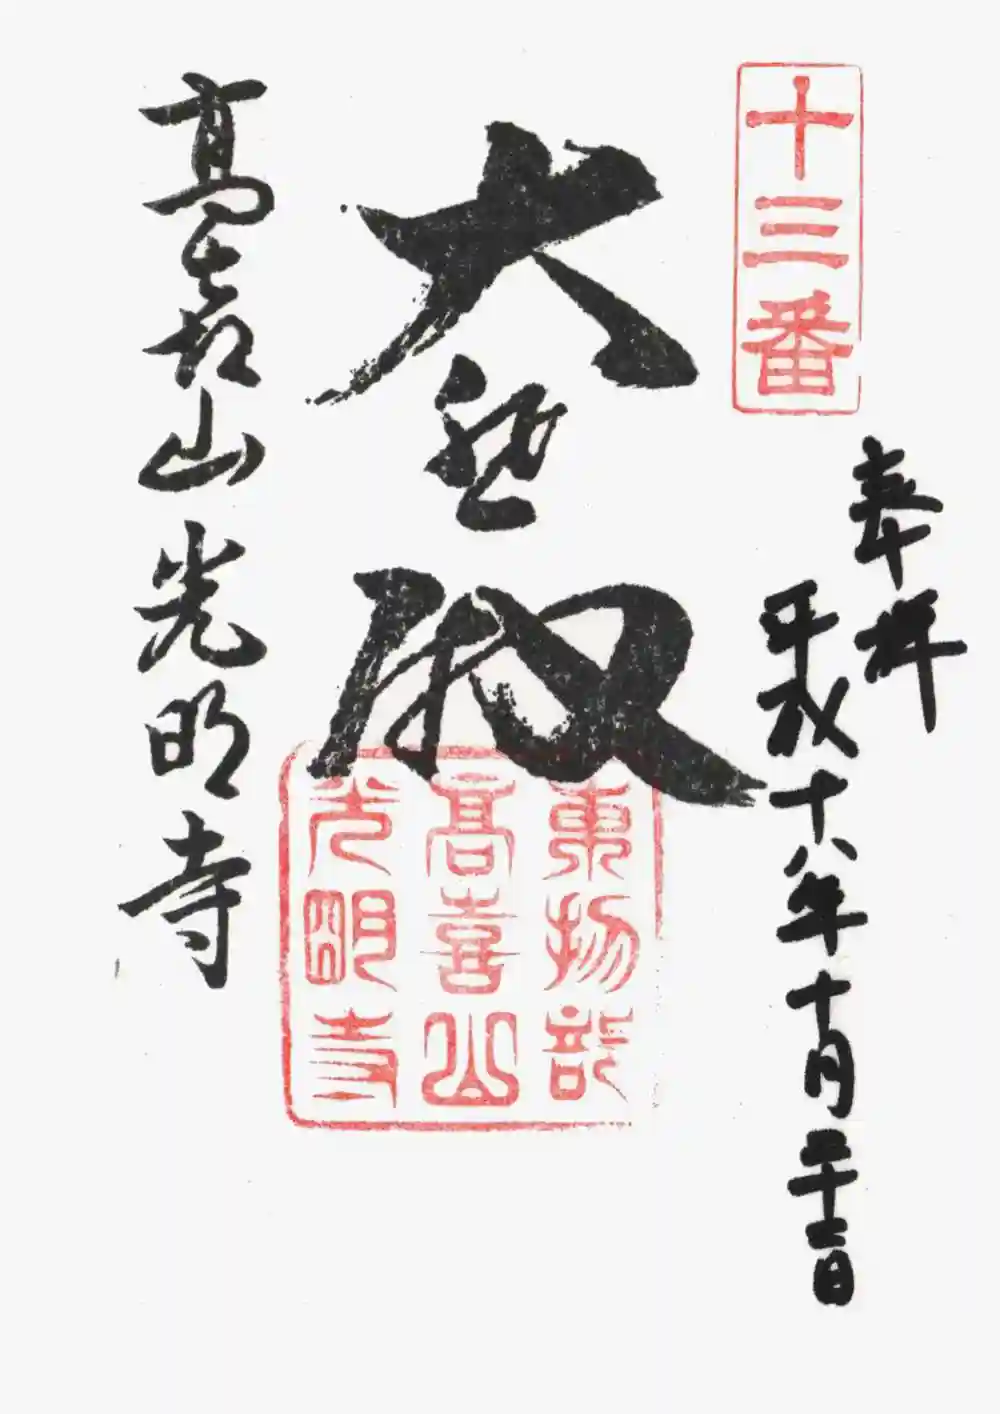 十三番
奉拝
平成十八年十月二十二日
大悲殿
東物部
高喜山
光明寺
高喜山 光明寺